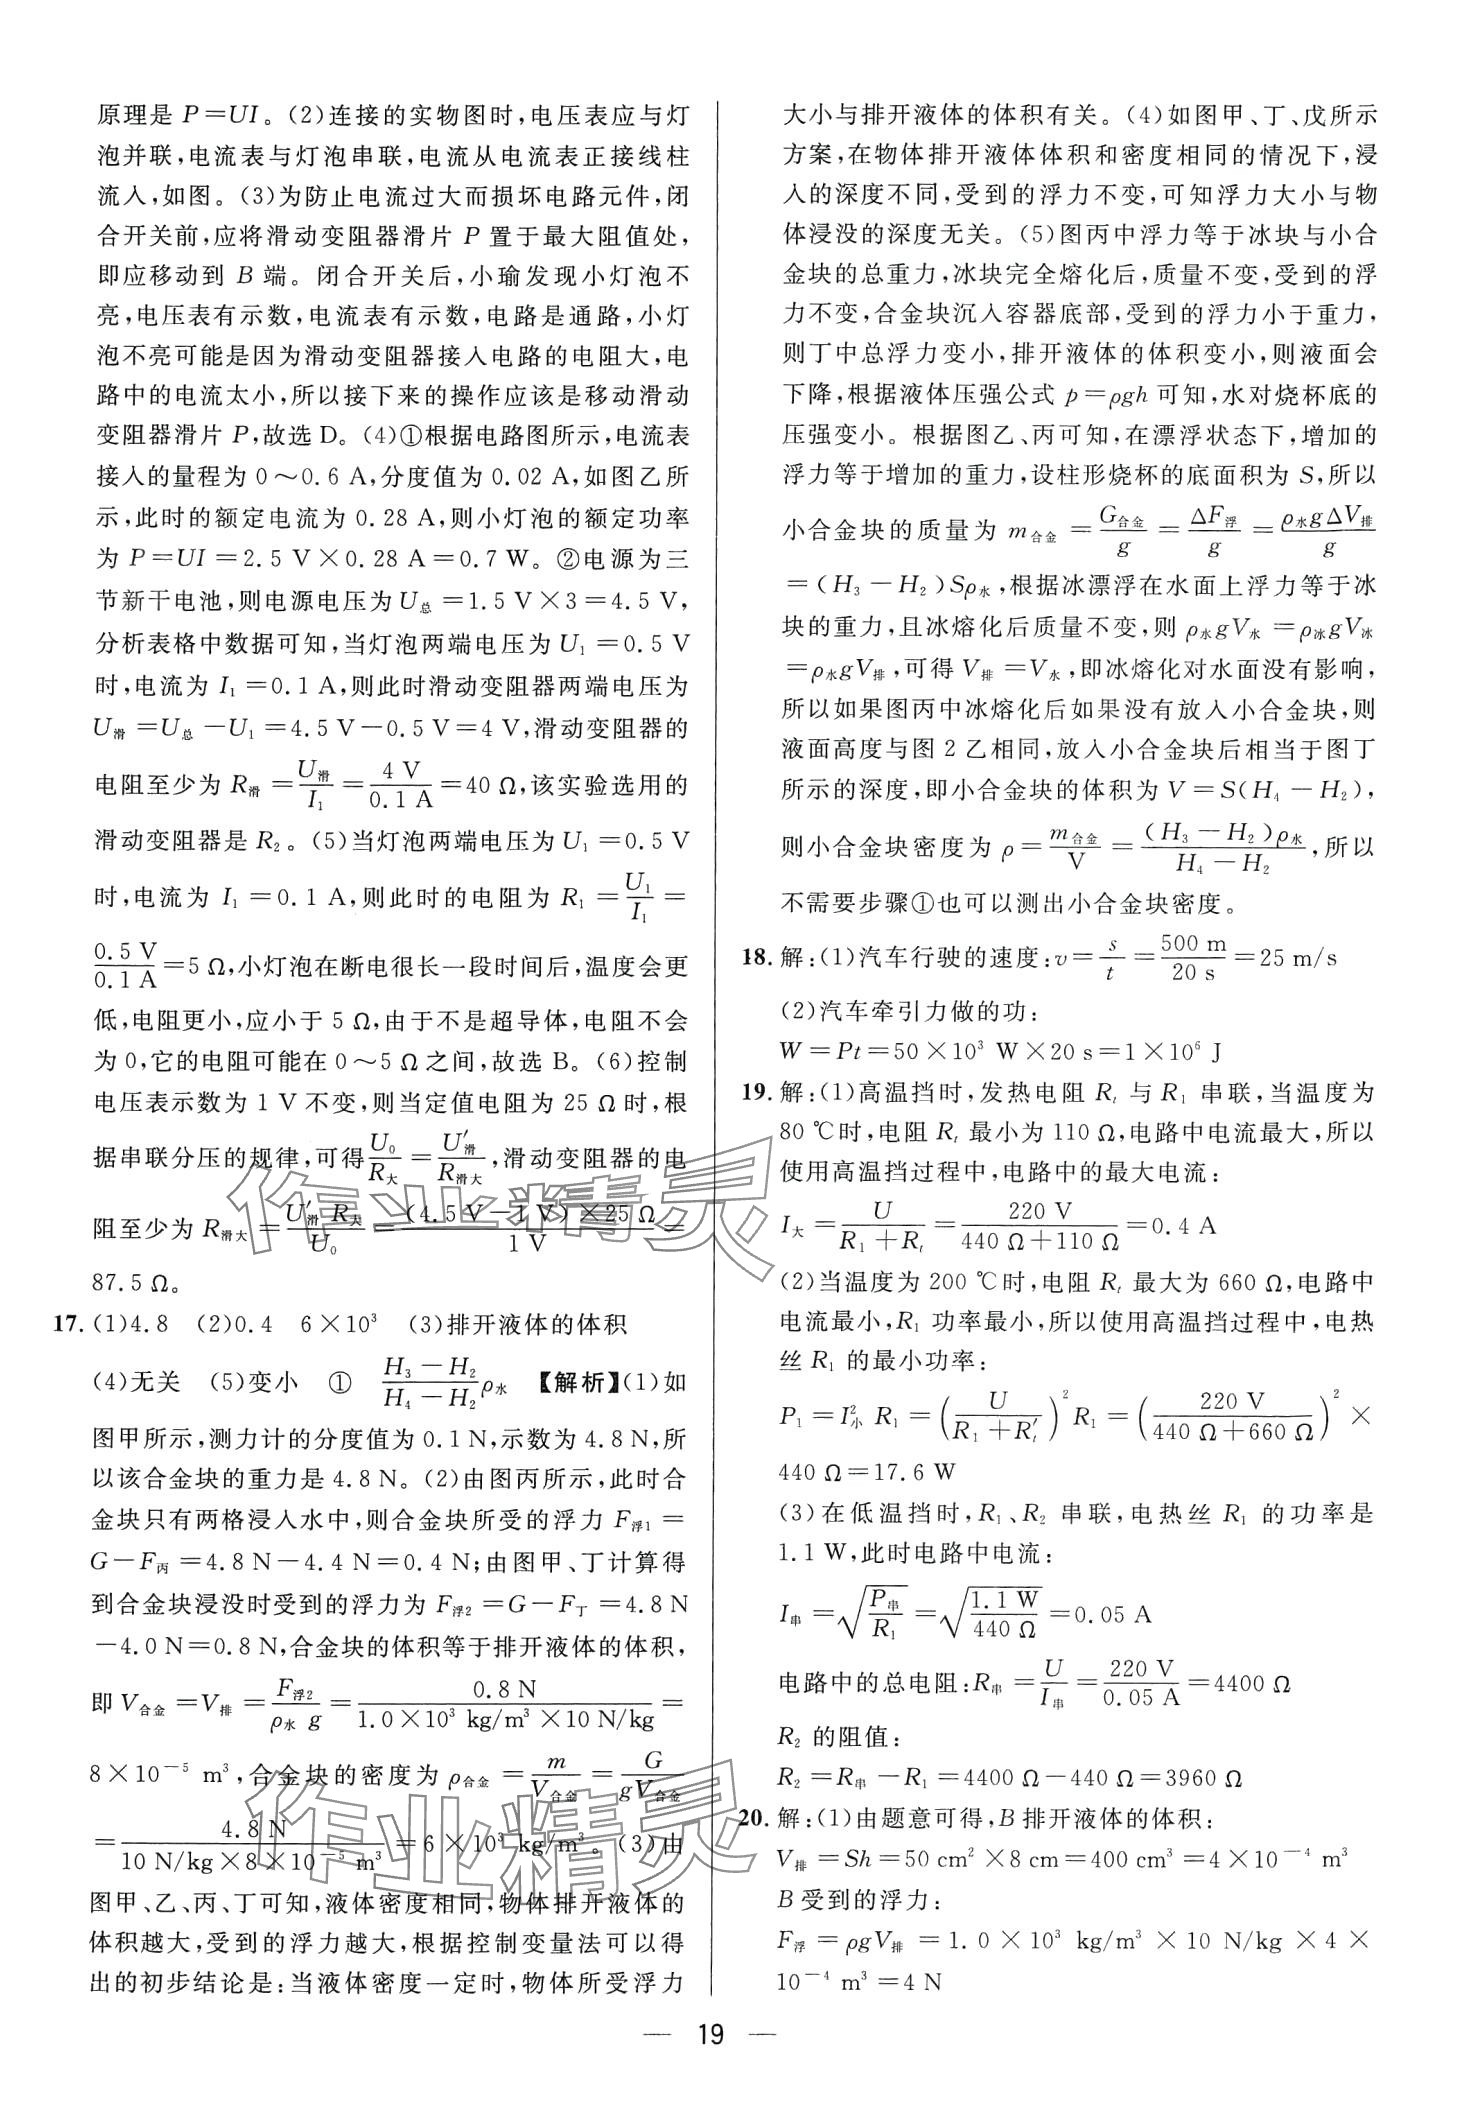 原理是 P=UI。(2)连接的实物图时,电压表应与灯
泡并联,电流表与灯泡串联,电流从电流表正接线柱
流入,如图。(3)为防止电流过大而损坏电路元件,闭
合开关前,应将滑动变阻器滑片 P 置于最大阻值处,
即应移动到 B 端。闭合开关后,小瑜发现小灯泡不
亮,电压表有示数,电流表有示数,电路是通路,小灯
泡不亮可能是因为滑动变阻器接入电路的电阻大,电
路中的电流太小,所以接下来的操作应该是移动滑动
变阻器滑片 P,故选 D。(4)①根据电路图所示,电流表
接入的量程为 0～0.6 A,分度值为 0.02 A,如图乙所
示,此时的额定电流为 0.28 A,则小灯泡的额定功率
为 P=UI=2.5 V×0.28 A=0.7 W。②电源为三
节新干电池,则电源电压为 U总=1.5 V×3=4.5 V,
分析表格中数据可知,当灯泡两端电压为 U₁=0.5 V
时,电流为 I₁=0.1 A,则此时滑动变阻器两端电压为
U滑=U总-U₁=4.5 V-0.5 V=4 V,滑动变阻器的
电阻至少为 R滑=U滑/I₁=4 V/0.1 A=40 Ω,该实验选用的
滑动变阻器是 R₂。(5)当灯泡两端电压为 U₁=0.5 V
时,电流为 I₁=0.1 A,则此时的电阻为 R₁=U₁/I₁=
0.5 V/0.1 A=5 Ω,小灯泡在断电很长一段时间后,温度会更
低,电阻更小,应小于 5 Ω,由于不是超导体,电阻不会
为 0,它的电阻可能在 0～5 Ω 之间,故选 B。(6)控制
电压表示数为 1 V 不变,则当定值电阻为 25 Ω 时,根
据串联分压的规律,可得 U₀/R大=U′滑/R滑大,滑动变阻器的电
阻至少为 R滑大=U′滑 R大/U₀=(4.5 V-1 V)×25 Ω/1 V=
87.5 Ω。
17. (1)4.8 (2)0.4 6×10³ (3)排开液体的体积
(4)无关 (5)变小 ① (H₃-H₂)/(H₄-H₂)ρ水 【解析】(1)如
图甲所示,测力计的分度值为 0.1 N,示数为 4.8 N,所
以该合金块的重力是 4.8 N。(2)由图丙所示,此时合
金块只有两格浸入水中,则合金块所受的浮力 F浮1=
G-F丙=4.8 N-4.4 N=0.4 N;由图甲、丁计算得
到合金块浸没时受到的浮力为 F浮2=G-F丁=4.8 N
-4.0 N=0.8 N,合金块的体积等于排开液体的体积,
即 V合金=V排=F浮2/ρ水 g=0.8 N/1.0×10³ kg/m³×10 N/kg=
8×10⁻⁵ m³,合金块的密度为 ρ合金=m/V合金=G/gV合金
=4.8 N/10 N/kg×8×10⁻⁵ m³=6×10³ kg/m³。(3)由
图甲、乙、丙、丁可知,液体密度相同,物体排开液体的
体积越大,受到的浮力越大,根据控制变量法可以得
出的初步结论是:当液体密度一定时,物体所受浮力
大小与排开液体的体积有关。(4)如图甲、丁、戊所示
方案,在物体排开液体体积和密度相同的情况下,浸
入的深度不同,受到的浮力不变,可知浮力大小与物
体浸没的深度无关。(5)图丙中浮力等于冰块与小合
金块的总重力,冰块完全熔化后,质量不变,受到的浮
力不变,合金块沉入容器底部,受到的浮力小于重力,
则丁中总浮力变小,排开液体的体积变小,则液面会
下降,根据液体压强公式 p=ρgh 可知,水对烧杯底的
压强变小。根据图乙、丙可知,在漂浮状态下,增加的
浮力等于增加的重力,设柱形烧杯的底面积为 S,所以
小合金块的质量为 m合金=G合金/g=ΔF浮/g=ρ水gΔV排/g
=(H₃-H₂)Sρ水,根据冰漂浮在水面上浮力等于冰
块的重力,且冰熔化后质量不变,则 ρ水gV水=ρ冰gV冰
=ρ水gV排,可得 V排=V水,即冰熔化对水面没有影响,
所以如果图丙中冰熔化后如果没有放入小合金块,则
液面高度与图 2 乙相同,放入小合金块后相当于图丁
所示的深度,即小合金块的体积为 V=S(H₄-H₂),
则小合金块密度为 ρ=m合金/V=(H₃-H₂)ρ水/H₄-H₂,所以
不需要步骤①也可以测出小合金块密度。
18. 解:(1)汽车行驶的速度:v=s/t=500 m/20 s=25 m/s
(2)汽车牵引力做的功:
W=Pt=50×10³ W×20 s=1×10⁶ J
19. 解:(1)高温挡时,发热电阻 Rₜ 与 R₁ 串联,当温度为
80 ℃时,电阻 Rₜ 最小为 110 Ω,电路中电流最大,所以
使用高温挡过程中,电路中的最大电流:
I大=U/R₁+Rₜ=220 V/440 Ω+110 Ω=0.4 A
(2)当温度为 200 ℃时,电阻 Rₜ 最大为 660 Ω,电路中
电流最小,R₁ 功率最小,所以使用高温挡过程中,电热
丝 R₁ 的最小功率:
P₁=I²小 R₁=(U/R₁+R′ₜ)²R₁=(220 V/440 Ω+660 Ω)²×
440 Ω=17.6 W
(3)在低温挡时,R₁、R₂ 串联,电热丝 R₁ 的功率是
1.1 W,此时电路中电流:
I串=√(P串/R₁)=√(1.1 W/440 Ω)=0.05 A
电路中的总电阻:R串=U/I串=220 V/0.05 A=4400 Ω
R₂ 的阻值:
R₂=R串-R₁=4400 Ω-440 Ω=3960 Ω
20. 解:(1)由题意可得,B 排开液体的体积:
V排=Sh=50 cm²×8 cm=400 cm³=4×10⁻⁴ m³
B 受到的浮力:
F浮=ρgV排=1.0×10³ kg/m³×10 N/kg×4×
10⁻⁴ m³=4 N
— 19 —
作业精灵
作业精灵